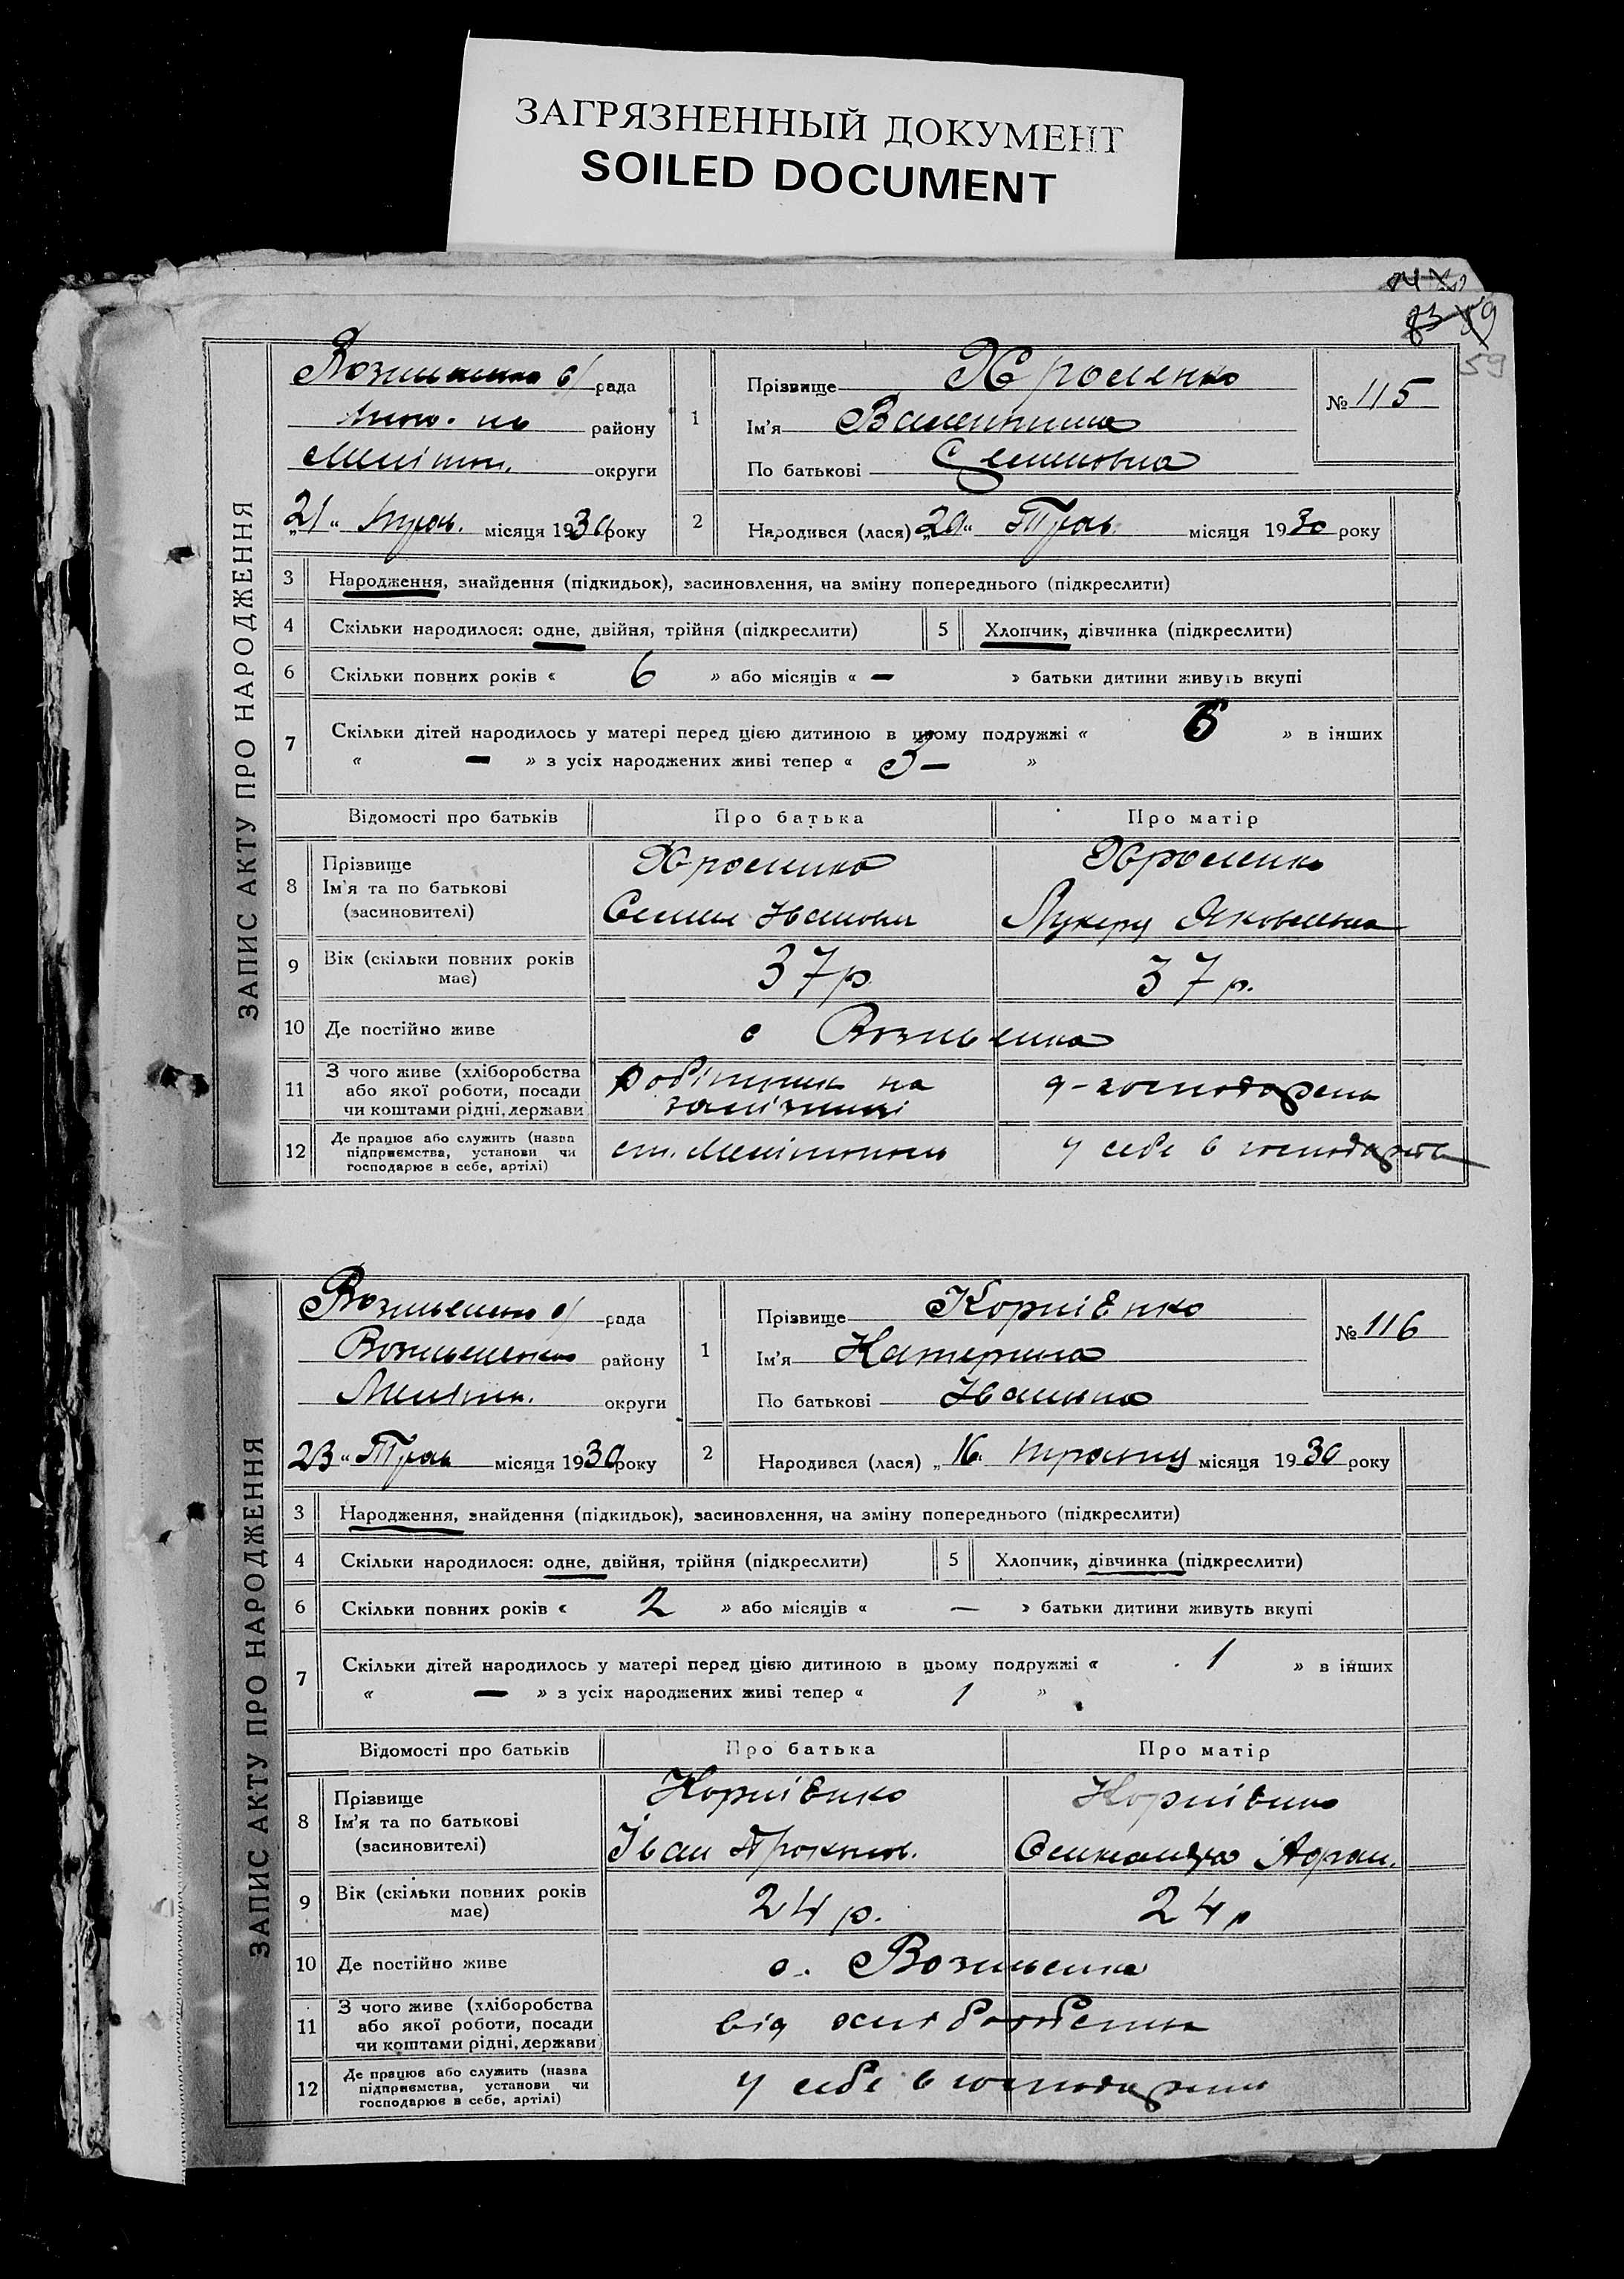 ЗАГРЯЗНЕННЫЙ ДОКУМЕНТ
SOILED DOCUMENT
59
ЗАПИС АКТУ ПРО НАРОДЖЕННЯ
рада
району
Меліtoп. округи
21 " Трав. місяця 1930 року
1
Прізвище Хроменко
Ім'я Валентина
По батькові Семеновна
№ 115
2
Народився (лася) „20" Трав. місяця 1930 року
3 Народження, знайдення (підкидьок), засиновлення, на зміну попереднього (підкреслити)
4 Скільки народилося: одне, двійня, трійня (підкреслити) 5 Хлопчик, дівчинка (підкреслити)
6 Скільки повних років « 6 » або місяців « — » батьки дитини живуть вкупі
7 Скільки дітей народилось у матері перед цією дитиною в цьому подружжі « » в інших
« — » з усіх народжених живі тепер « »
Відомості про батьків Про батька Про матір
8 Прізвище Хроменко Хроменко
Ім'я та по батькові
(засновителі) Семен Іванович Лукерія Яковлевна
9 Вік (скільки повних років має) 37 р. 37 р.
10 Де постійно живе с Вознесенка
11 З чого живе (хліборобства або якої роботи, посади чи коштами рідні, держави) робітник на залізниці д-господарка
12 Де працює або служить (назва підприємства, установи чи господарює в себе, артілі) ст. Мелітополь у себе в господарстві
ЗАПИС АКТУ ПРО НАРОДЖЕННЯ
рада
району
Меліт. округи
23 " Трав місяця 1930 року
1
Прізвище Корнієнко
Ім'я Катерина
По батькові Івановна
№ 116
2
Народився (лася) „16" травня місяця 1930 року
3 Народження, знайдення (підкидьок), засиновлення, на зміну попереднього (підкреслити)
4 Скільки народилося: одне, двійня, трійня (підкреслити) 5 Хлопчик, дівчинка (підкреслити)
6 Скільки повних років « 2 » або місяців « — » батьки дитини живуть вкупі
7 Скільки дітей народилось у матері перед цією дитиною в цьому подружжі « 1 » в інших
« — » з усіх народжених живі тепер « 1 »
Відомості про батьків Про батька Про матір
8 Прізвище Корнієнко Корнієнко
Ім'я та по батькові
(засиновителі) Іван Прокоп. Олександра Адріан.
9 Вік (скільки повних років має) 24 р. 24 р
10 Де постійно живе с. Вознесенка
11 З чого живе (хліборобства або якої роботи, посади чи коштами рідні, держави) від хліборобства
12 Де працює або служить (назва підприємства, установи чи господарює в себе, артілі) у себе в господарстві